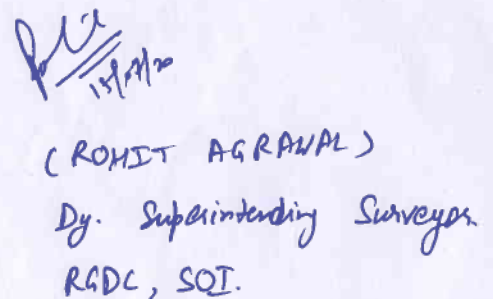 15/07/20
(ROHIT AGRAWAL)
Dy. Superintending Surveyor
RGDC, SOI.